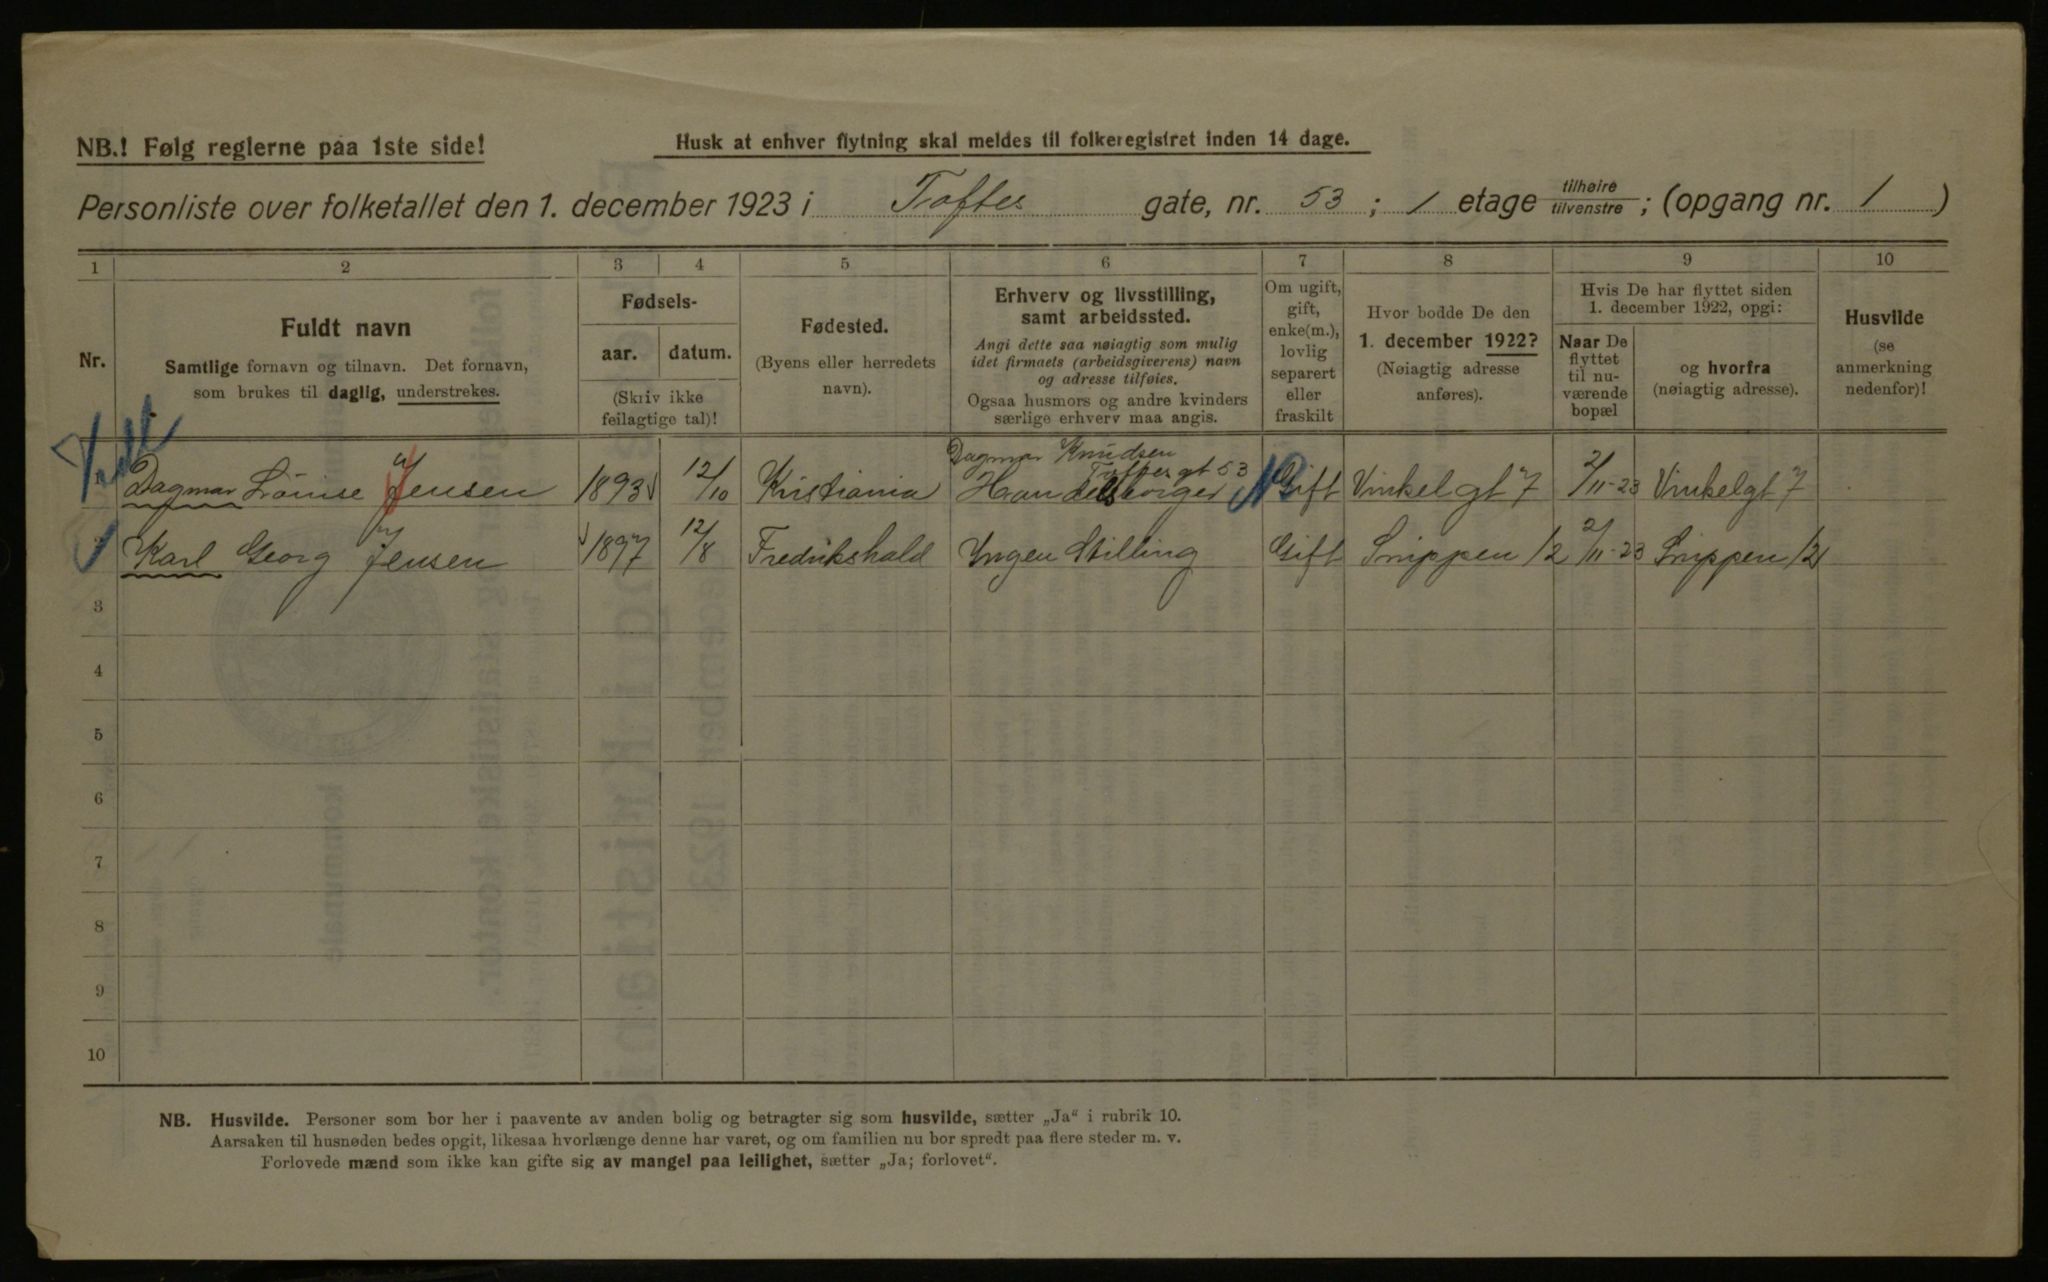 NB.! Følg reglerne paa 1ste side!
Husk at enhver flytning skal meldes til folkeregistret inden 14 dage.
Personliste over folketallet den 1. december 1923 i Toftes gate, nr. 53; 1 etage tilhøire tilvenstre; (opgang nr. 1)
1 2 3 4 5 6 7 8 9 10
Nr.
Fuldt navn
Samtlige fornavn og tilnavn. Det fornavn,
som brukes til daglig, understrekes.
Fødsels-
aar. datum.
(Skriv ikke
feilagtige tal)!
Fødested.
(Byens eller herredets
navn).
Erhverv og livsstilling,
samt arbeidssted.
Angi dette saa nøiagtig som mulig
idet firmaets (arbeidsgiverens) navn
og adresse tilføies.
Ogsaa husmors og andre kvinders
særlige erhverv maa angis.
Om ugift,
gift,
enke(m.),
lovlig
separert
eller
fraskilt
Hvor bodde De den
1. december 1922?
(Nøiagtig adresse
anføres).
Hvis De har flyttet siden
1. december 1922, opgi:
Naar De
flyttet
til nu-
værende
bopæl
og hvorfra
(nøiagtig adresse).
Husvilde
(se
anmerkning
nedenfor)!
Dagmar Knudsen
Toftes gt 53
1 Dagmar Lovise Jensen 1893 12/10 Kristiania Handelsborger Gift Vinkelgt 7 2/11-23 Vinkelgt 7
2 Karl Georg Jensen 1897 12/8 Fredrikshald Yngen Stilling Gift Snippen 12 2/11-23 Snippen 12
3
4
5
6
7
8
9
10
NB. Husvilde. Personer som bor her i paavente av anden bolig og betragter sig som husvilde, sætter „Ja" i rubrik 10.
Aarsaken til husnøden bedes opgit, likesaa hvorlænge denne har varet, og om familien nu bor spredt paa flere steder m. v.
Forlovede mænd som ikke kan gifte sig av mangel paa leilighet, sætter „Ja; forlovet".